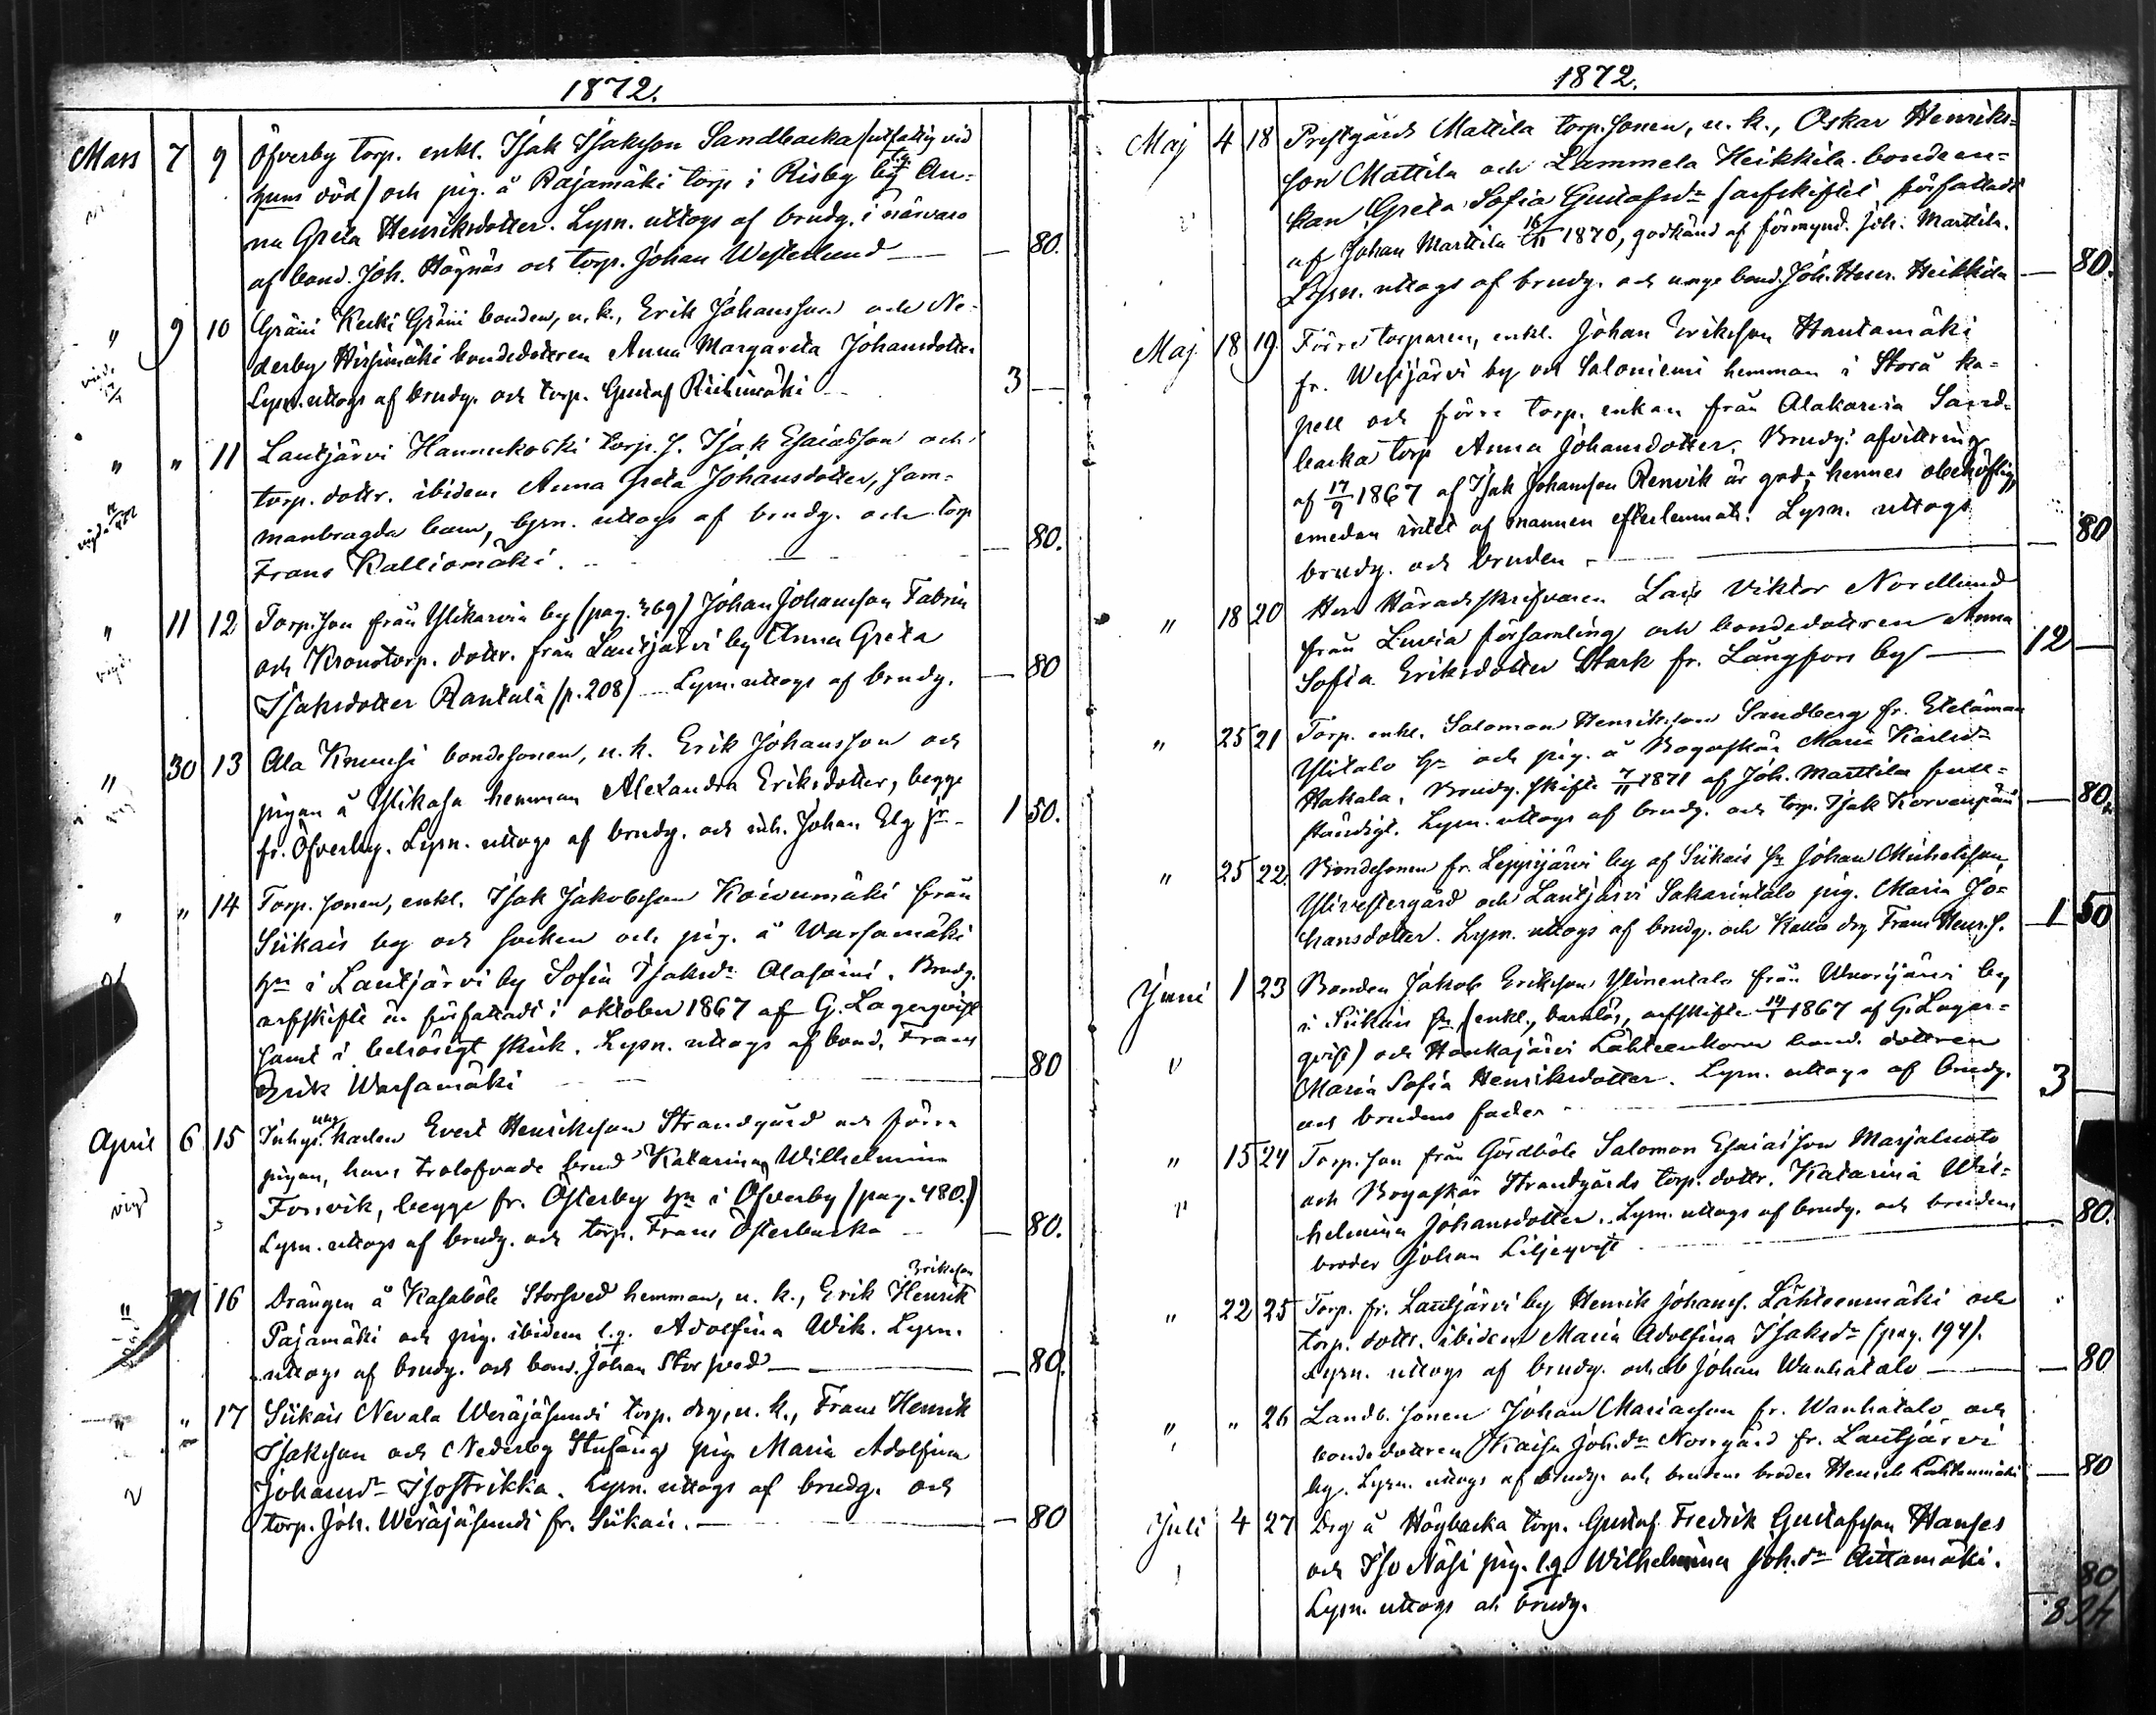 1872.
Mars 7 9 Öfverby torp. enkl. Isak Isakson Sandbacka (utfattig vid
hans död) och pig. å Rajamäki torp i Risby by An-
na Greta Henriksdotter. Lysn. uttogs af brudg. i närvaro
af bond. Joh. Högnäs och torp. Johan Westerlund — 80.
" 9 10 Gräni Kecki Gräni bonden, u. k., Erik Johansson och Ne-
derby Hirsimäki bondedotteren Anna Margareta Johansdotter
Lysn. uttogs af brudg. och torp. Gustaf Riihimäki 3 —
" " 11 Lautjärvi Hannukoski torp. s. Isak Esaiasson och
torp. dottr. ibidem Anna Greta Johansdotter, sam-
manbragda barn, lysn. uttogs af brudg. och torp
Frans Kalliomäki. — 80.
" 11 12 Torp. son från Ylikarvia by (pag. 369) Johan Johansson Fabrin
och Kronotorp. dottr. från Lautjärvi by Anna Greta
Isaksdotter Rantala (p. 208) — Lysn. uttogs af brudg. — 80
" 30 13 Ala Knuusi bondesonen, u. k. Erik Johansson och
pigan å Ylikasa hemman Alexandra Eriksdotter, begge
fr. Öfverby. Lysn. uttogs af brudg. och inh. Johan Elg jr — 1 50.
" " 14 Torp. sonen, enkl. Isak Jakobsson Koivumäki från
Siikais by och socken och pig. å Warsamäki
hn i Lautjärvi by Sofia Isaksdr Alasaini. Brudg.
arfskifte är författadt i oktober 1867 af G. Lagerqvist
samt i behörigt skick. Lysn. uttogs af bond. Frans
Erik Warsamäki — 80
April 6 15 Inhys. karlen Evert Henriksson Strandgård och förra
pigan, hans trolofvade brud Katarina Wilhelmina
Forsvik, begge fr. Österby hn i Öfverby (pag. 480.)
Lysn. uttogs af brudg. och torp. Frans Österbacka — 80.
Eriksson
" 16 Drängen å Kasaböle Storsved hemman, u. k., Erik Henrik
Pajamäki och pig. ibidem l.g. Adolfina Wik. Lysn.
uttogs af brudg. och bond. Johan Storsved — 80.
" " 17 Siikais Nevala Weräjäsundi torp. drg, u. k., Frans Henrik
Isakson och Nederby Stufäng pig Maria Adolfina
Johansdr Isostrikka. Lysn. uttogs af brudg. och
torp. Joh. Weräjäsundi fr. Siikais. — 80
1872.
Maj 4 18 Prestgårds Mattila torp. sonen, u. k., Oskar Henriks-
son Mattila och Lammela Heikkilä bondeen-
kan Greta Sofia Gustafsdr (arfskiftet författadt
af Johan Marttila 16/11 1870, godkänd af förmynd. Joh. Marttila.
Lysn. uttogs af brudg. och unge bond. Joh. Henr. Heikkilä — 80.
Maj 18 19. Förre torparen, enkl. Johan Eriksson Hautamäki
fr. Wesijärvi by och Saloniemi hemman i Storå ka-
pell och förre torp. enkan från Alakarvia Sand-
backa torp Anna Johansdotter. Brudg: afvittring
af 17/9 1867 af Isak Johansson Renvik är god; hennes obehöflig,
emedan intet af mannen efterlemnats. Lysn. uttogs
brudg. och bruden — 80
" 18 20 Herr Häradsskrifvaren Lars Viktor Nordlund
från Luvia församling och bondedottren Anna
Sofia Eriksdotter Stark fr. Långfors by — 12 —
" 25 21 Torp. enkl. Salomon Henriksson Sandberg fr. Etelämaa
Ylitalo hn och pig. å Bogaskär Maria Karlsdr
Hakala. Brudg. skifte 7/11 1871 af Joh. Marttila full-
ständigt. Lysn. uttogs af brudg. och torp. Isak Korvenpää — 80.
" 25 22. Bondesonen fr. Leppijärvi by af Siikais sn Johan Michelsson
Ylivestergård och Lautjärvi Sakarintalo pig. Maria Jo-
hansdotter. Lysn. uttogs af brudg. och Kalla drg Frans Henr. s. 1 50
Juni 1 23 Bonden Jakob Eriksson Ylinentalo från Wuorijärvi by
i Siikais sn (enkl., barnlös, arfskifte 14/1 1867 af G. Lager-
qvist) och Honkajärvi Lähteenkorva bond. dottren
Maria Sofia Henriksdotter. Lysn. uttogs af brudg.
och brudens fader — 3
" 15 24 Torp. son från Gördböle Salomon Esaiasson Marjaluoto
och Bogaskär Strandgårds torp. dottr. Katarina Wil-
helmina Johansdotter. Lysn. uttogs af brudg. och brudens
broder Johan Liljeqvist — 80.
" 22 25 Torp. fr. Lautjärvi by Henrik Johans s. Lähteenmäki och
torp. dottr. ibidem Maria Adolfina Isaksdr (pag. 194).
Lysn. uttogs af brudg. och Johan Wanhatalo — 80
" " 26 Landb. sonen Johan Mariasson fr. Wanhatalo och
bondedottren Kaisa Joh. dr Norrgård fr. Lautjärvi
by. Lysn. uttogs af brudg. och brudens broder Henrik Lähteenmäki — 80
Juli 4 27 Drg å Högbacka torp. Gustaf Fredrik Gustafsson Hanses
och Iso Näsi pig. l.g. Wilhelmina Joh. dr Aittamäki.
Lysn. uttogs af brudg. 80